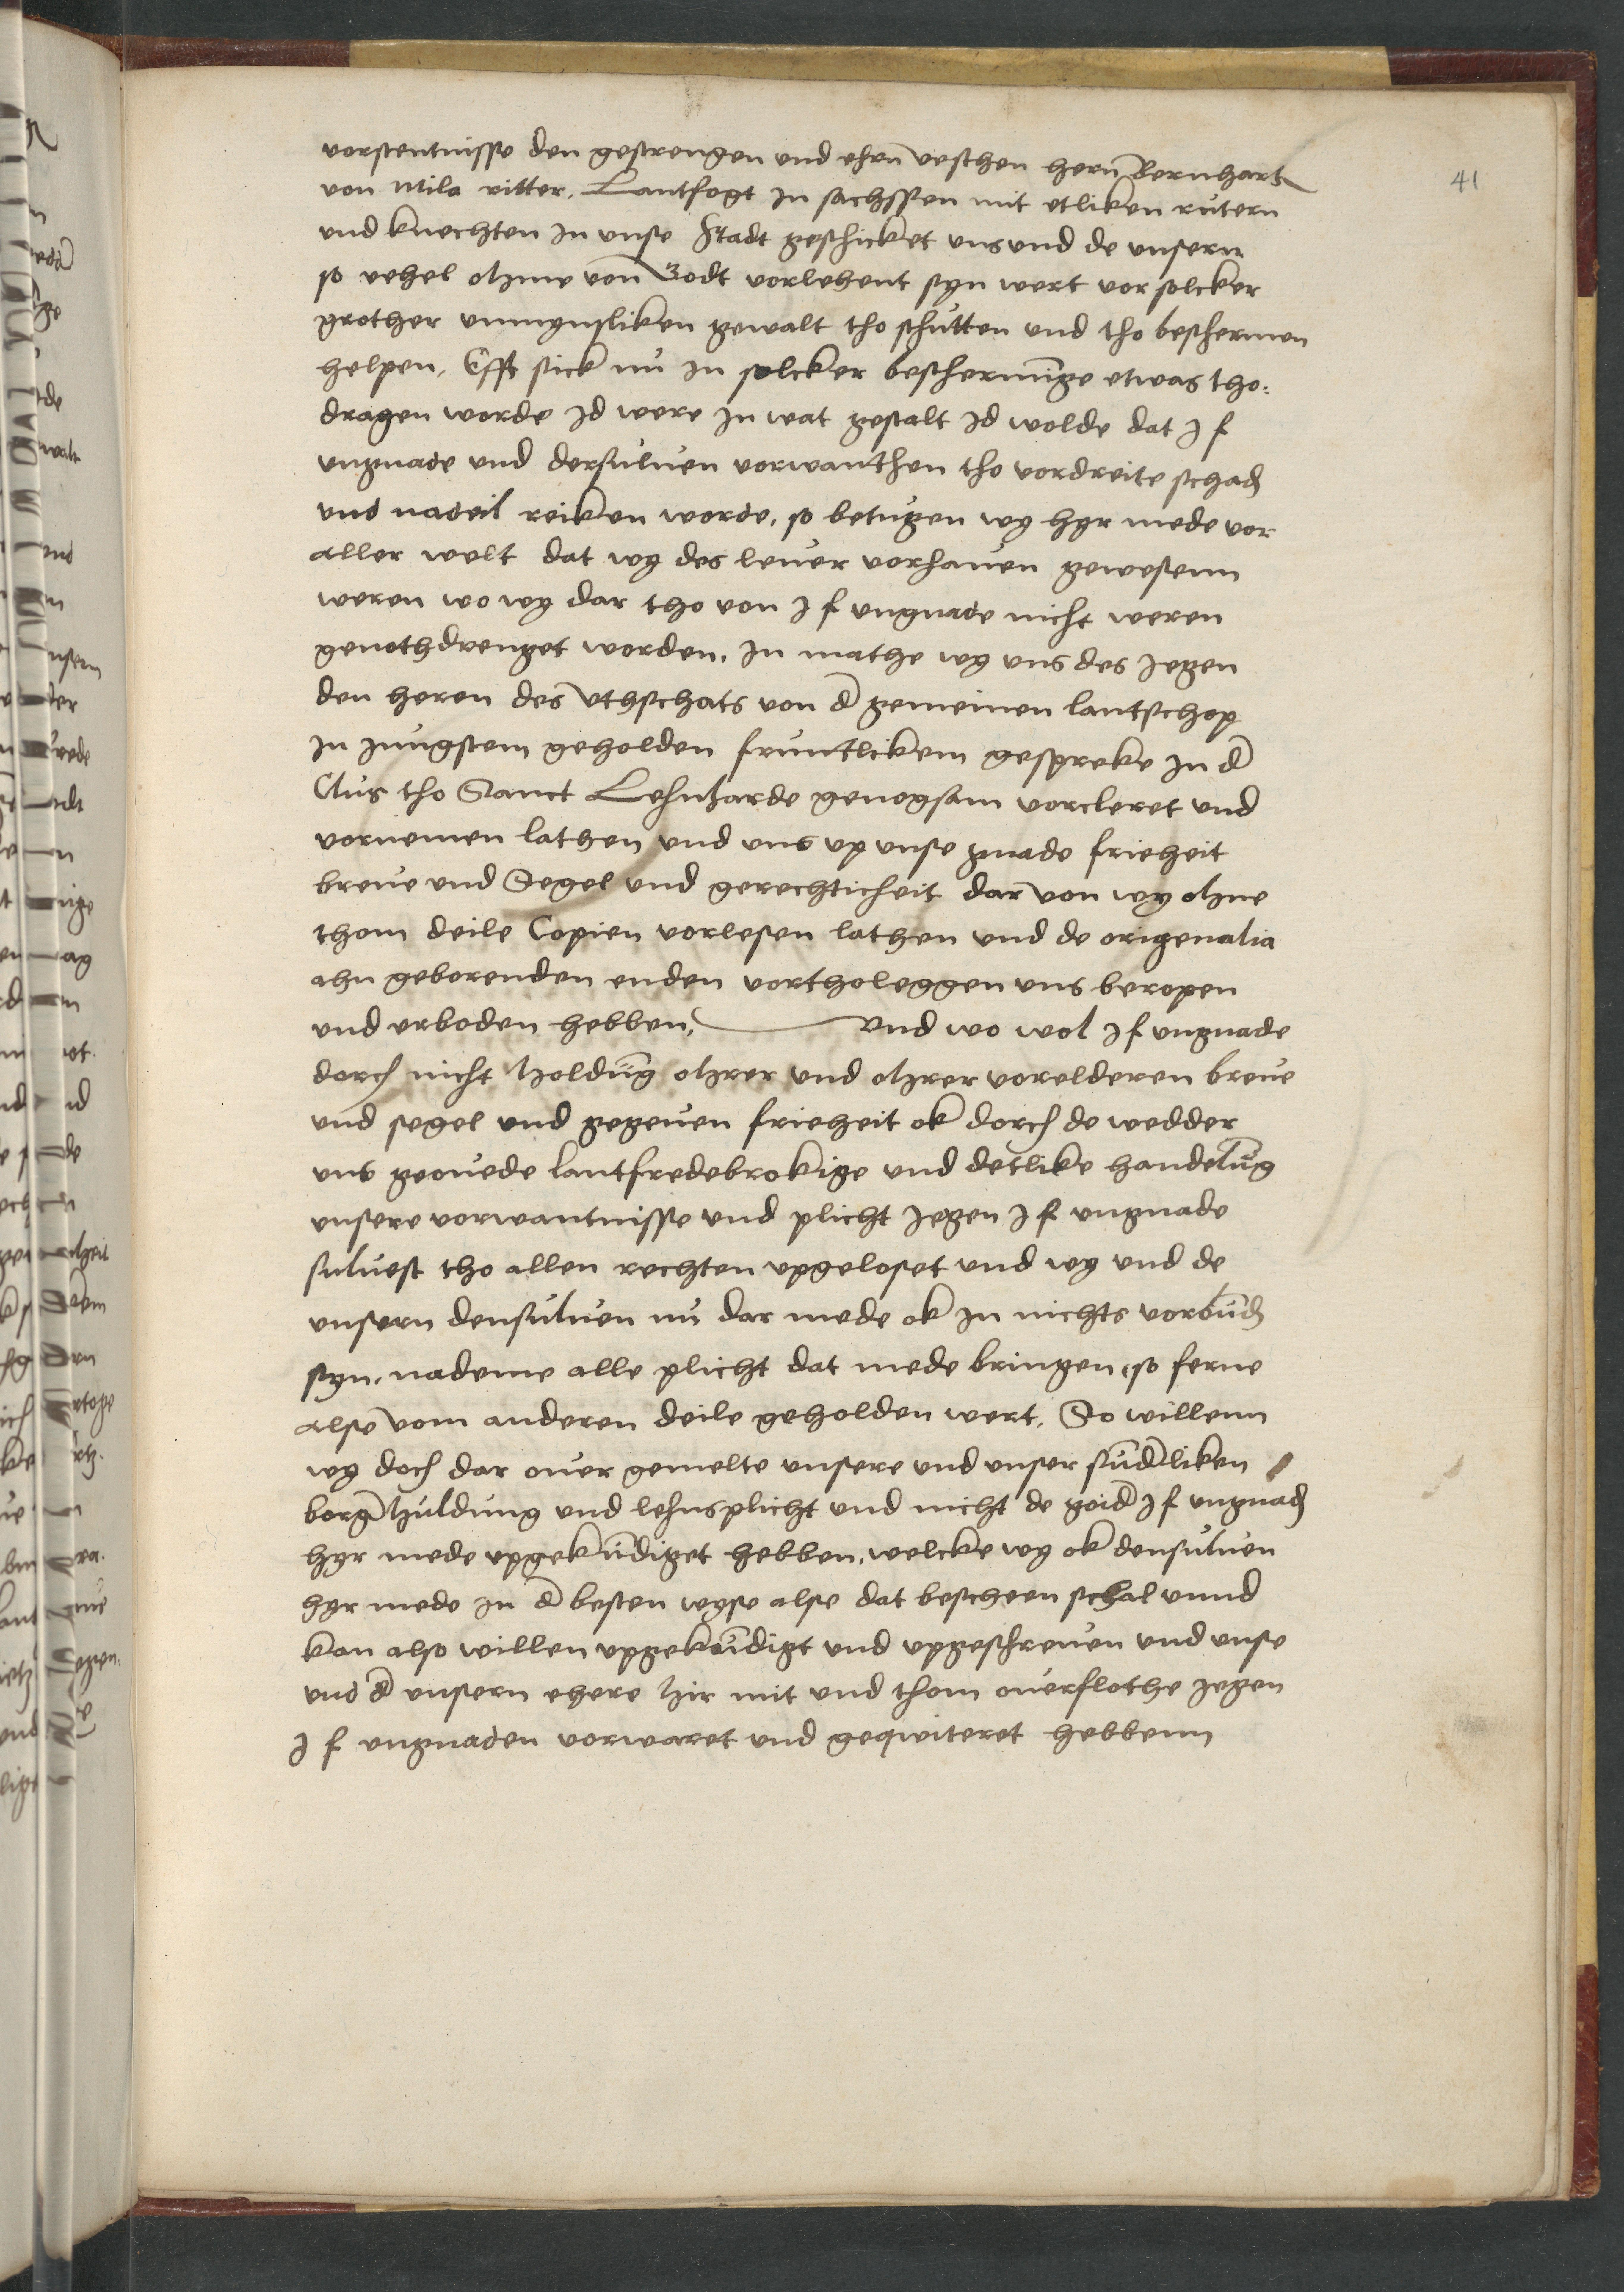 41
vorstentnisse den gestrengen und ehrn veschen hern Bernhart
von Mila ritter. Lantfogt in sachssen mit etliken rutern
und knechten in unse stadt geschicket uns und de unsern
so vehel ohme von Godt vorlehent syn wert vor solcker
grother unmynsliken gewalt tho schutten und tho beschermen
helpen, Efft sick nu in solcker beschermige etwas tho:
dragen worde id were in wat gestalt id wolde dat I f
ungnade und dersulven vorwanthen tho vordreite schad
und nadeil reiken worde, so betugen wy hyr mede vor
aller welt dat wy des lever vorhaven gewesenn
weren wo wy dar tho von I f ungnade nicht weren
genothdrenget worden. in mathe wy uns des Iegen
den heren des Uthschats von d gemeinen lantschop
in jungstem geholden fruntlikem gespreke in d
Clus tho Sanct Lehnharde genogsam vorcleret und
vornemen lathen und uns up unse gnade frieheit
breve und Segel und gerechticheit dar von wy ohne
thom deile Copien vorlesen lathen und de origenalia
ahn geborenden enden vortholeggen uns beropen
und erboden hebben, Und wo wol I f ungnade
dorch nicht holdung ohrer und ohrer vorelderen breve
und segel und gegeven frieheit ok dorch de wedder
uns geovede lantfredebrokige und detlike handelug
unsere vorwantnisse und plicht Iegen I f ungnade
sulvest tho allen rechten upgeloset und wy und de
unsern densulven nu dar mede ok in nichts vorbud
syn. nademe alle plicht dat mede bringen, so ferne
alse vom anderen deile geholden wert. So willenn
wy doch dar over gemelte unsere und unser sundliken
borg huldung und lehnsplicht und nicht de goid I f ungnad
hyr mede upgekundiget hebben, welcke wy ok densulven
hyr mede in d besten wyse alse dat bescheen schal unnd
kan also willen upgekundigt und upgeschreven und unse
und d unsern ehere hir mit und thom overflothe Iegen
I f ungnaden vorwaret und geqwiteret hebbenn